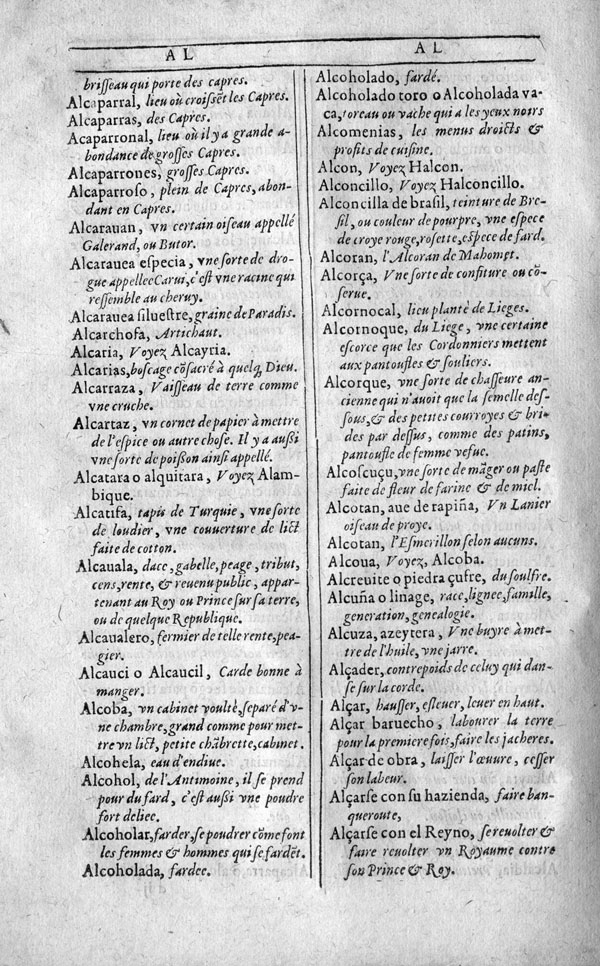 A L
A L
brisseau qui porte des capres.
Alcaparral, lieu où croissẽt les Capres.
Alcaparras, des Capres.
Acaparronal, lieu où il y a grande a-
bondance de grosses Capres.
Alcaparrones, grosses Capres.
Alcaparroso, plein de Capres, abon-
dant en Capres.
Alcarauan, vn certain oiseau appellé
Galerand, ou Butor.
Alcarauea especia, vne sorte de dro-
gue appellee Carui, c'est vne racine qui
ressemble au cheruy.
Alcarauea siluestre, graine de Paradis.
Alcarchofa, Artichaut.
Alcaria, Voyez Alcayria.
Alcarias, boscage cõsacré à quelq, Dieu.
Alcarraza, Vaisseau de terre comme
vne cruche.
Alcartaz, vn cornet de papier à mettre
de l'espice ou autre chose. Il y a aussi
vne sorte de poisson ainsi appellé.
Alcatara o alquitara, Voyez Alam-
bique.
Alcatifa, tapis de Turquie, vne sorte
de loudier, vne couuerture de lict
faite de cotton.
Alcauala, dace, gabelle, peage, tribut,
cens, rente, & reuenu public, appar-
tenant au Roy ou Prince sur sa terre,
ou de quelque Republique.
Alcaualero, fermier de telle rente, pea-
gier.
Alcauci o Alcaucil, Carde bonne à
manger.
Alcoba, vn cabinet voulté, separé d'v-
ne chambre, grand comme pour met-
tre vn lict, petite chãbrette, cabinet.
Alcohela, eau d'endiue.
Alcohol, de l'Antimoine, il se prend
pour du fard, c'est aussi vne poudre
fort deliee.
Alcoholar, farder, se poudrer cõme font
les femmes & hommes qui se fardẽt.
Alcoholada, fardee.
Alcoholado, fardé.
Alcoholado toro o Alcoholada va-
ca, toreau ou vache qui a les yeux noirs
Alcomenias, les menus droicts &
profits de cuisine.
Alcon, Voyez Halcon.
Alconcillo, Voyez Halconcillo.
Alconcilla de brasil, teinture de Bre-
sil, ou couleur de pourpre, vne espece
de croye rouge, rosette, espece de fard.
Alcoran, l'Alcoran de Mahomet.
Alcorça, Vne sorte de confiture ou cõ-
serue.
Alcornocal, lieu planté de Lieges.
Alcornoque, du Liege, vne certaine
escorce que les Cordonniers mettent
aux pantoufles & souliers.
Alcorque, vne sorte de chasseure an-
cienne qui n'auoit que la semelle des-
sous, & des petites courroyes & bri-
des par dessus, comme des patins,
pantoufle de femme vefue.
Alcoscuçu, vne sorte de mãger ou paste
faite de fleur de farine & de miel.
Alcotan, aue de rapiña, Vn Lanier
oiseau de proye.
Alcotan, l'Esmerillon selon aucuns.
Alcoua, Voyez, Alcoba.
Alcreuite o piedra çufre, du soulfre.
Alcuña o linage, race, lignee, famille,
generation, genealogie.
Alcuza, azeytera, Vne buyre à met-
tre de l'huile, vne jarre.
Alçader, contrepoids de celuy qui dan-
se sur la corde.
Alçar, hausser, esleuer, leuer en haut.
Alçar baruecho, labourer la terre
pour la premiere fois, faire les jacheres.
Alçar de obra, laisser l'œuure, cesser
son labeur.
Alçarse con su hazienda, faire ban-
queroute,
Alçarse con el Reyno, se reuolter &
faire reuolter vn Royaume contre
son Prince & Roy.